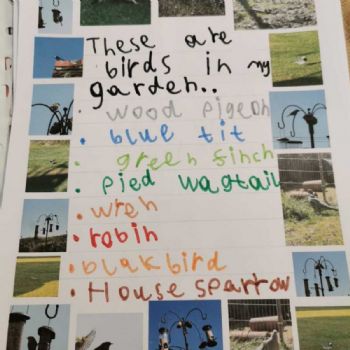 These are
birds in my
garden..
• wood pigeon
• blue tit
• green finch
• Pied wagtail
• wren
• robin
• blakbird
• House sparrow